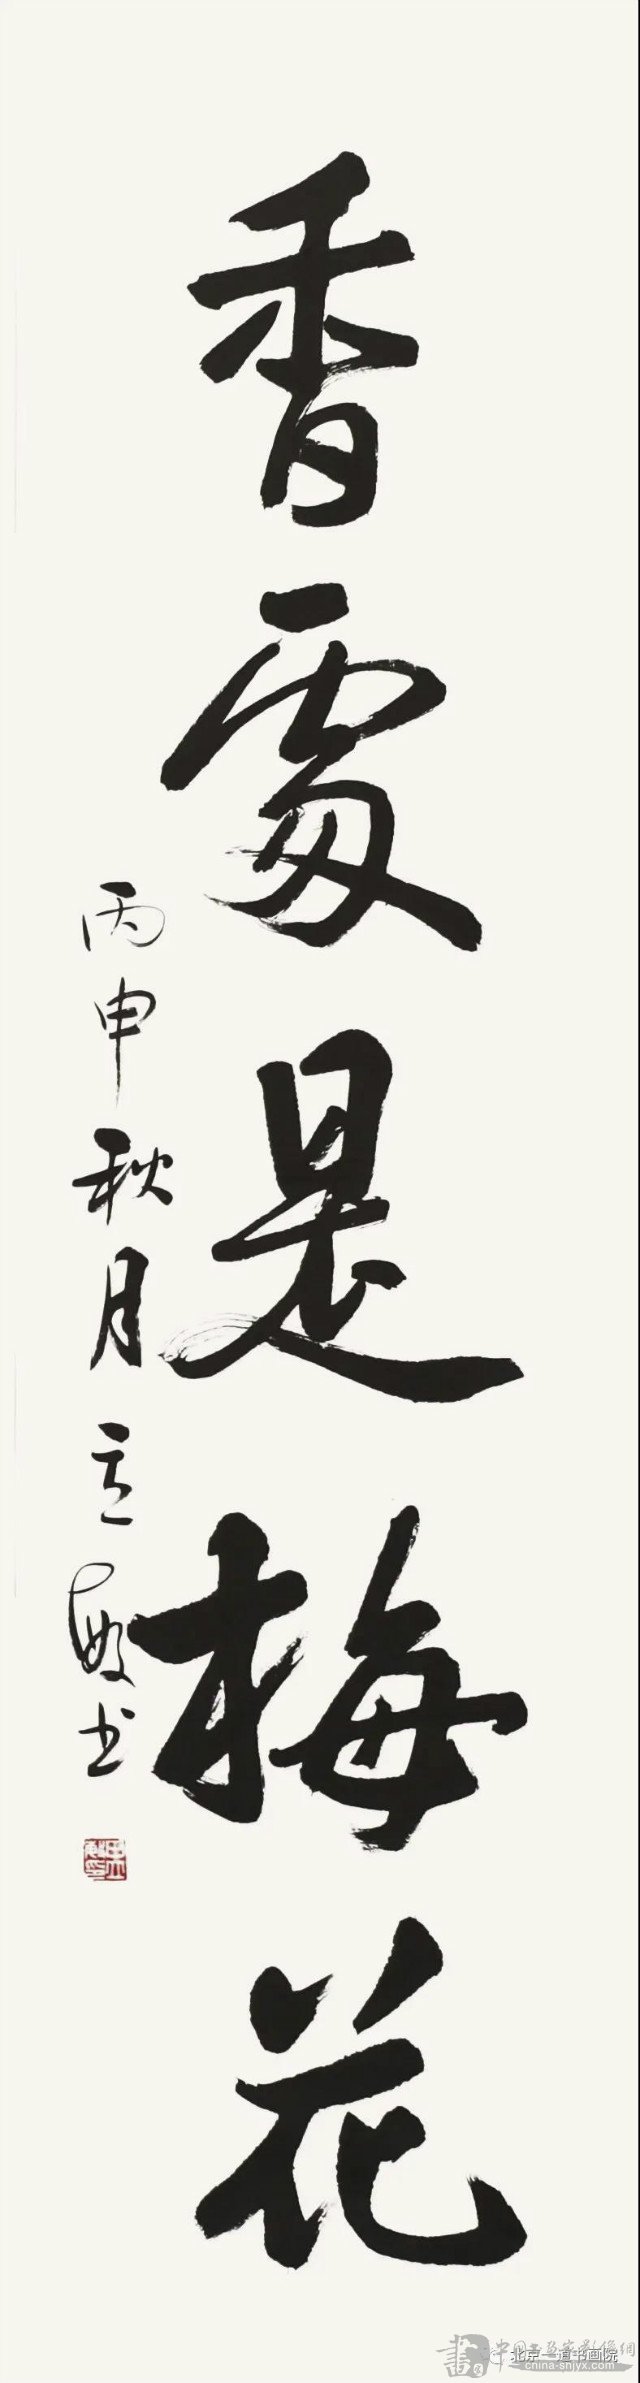 香處是梅花
丙申秋月立敏书
書 中国书画家影像網
北京一道书画院
china-shjyx.com